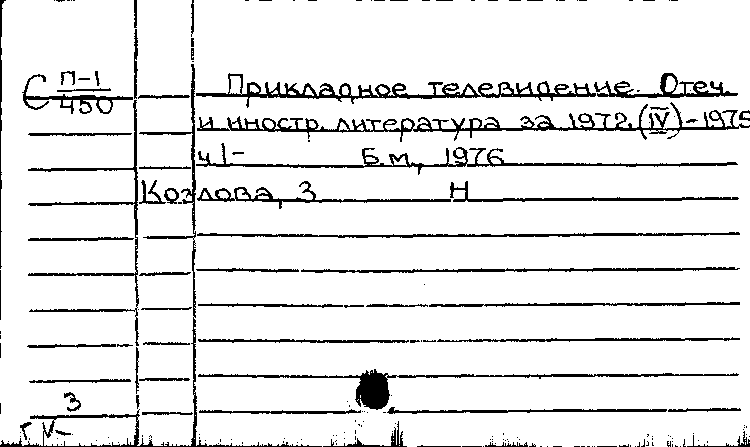 С П-1/450 Прикладное телевидение. Отеч.
и иностр. литература за 1972 (IV) - 1975
ч 1- Б.м., 1976
Козлова, З Н
3
ГК